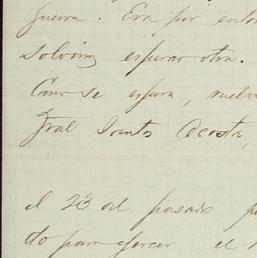 guerra. Era por enton
solvimos esperar otra.
Como se espera, vuelve
Gral Santos Acosta,
el 23 del pasado p
do para ejercer el m